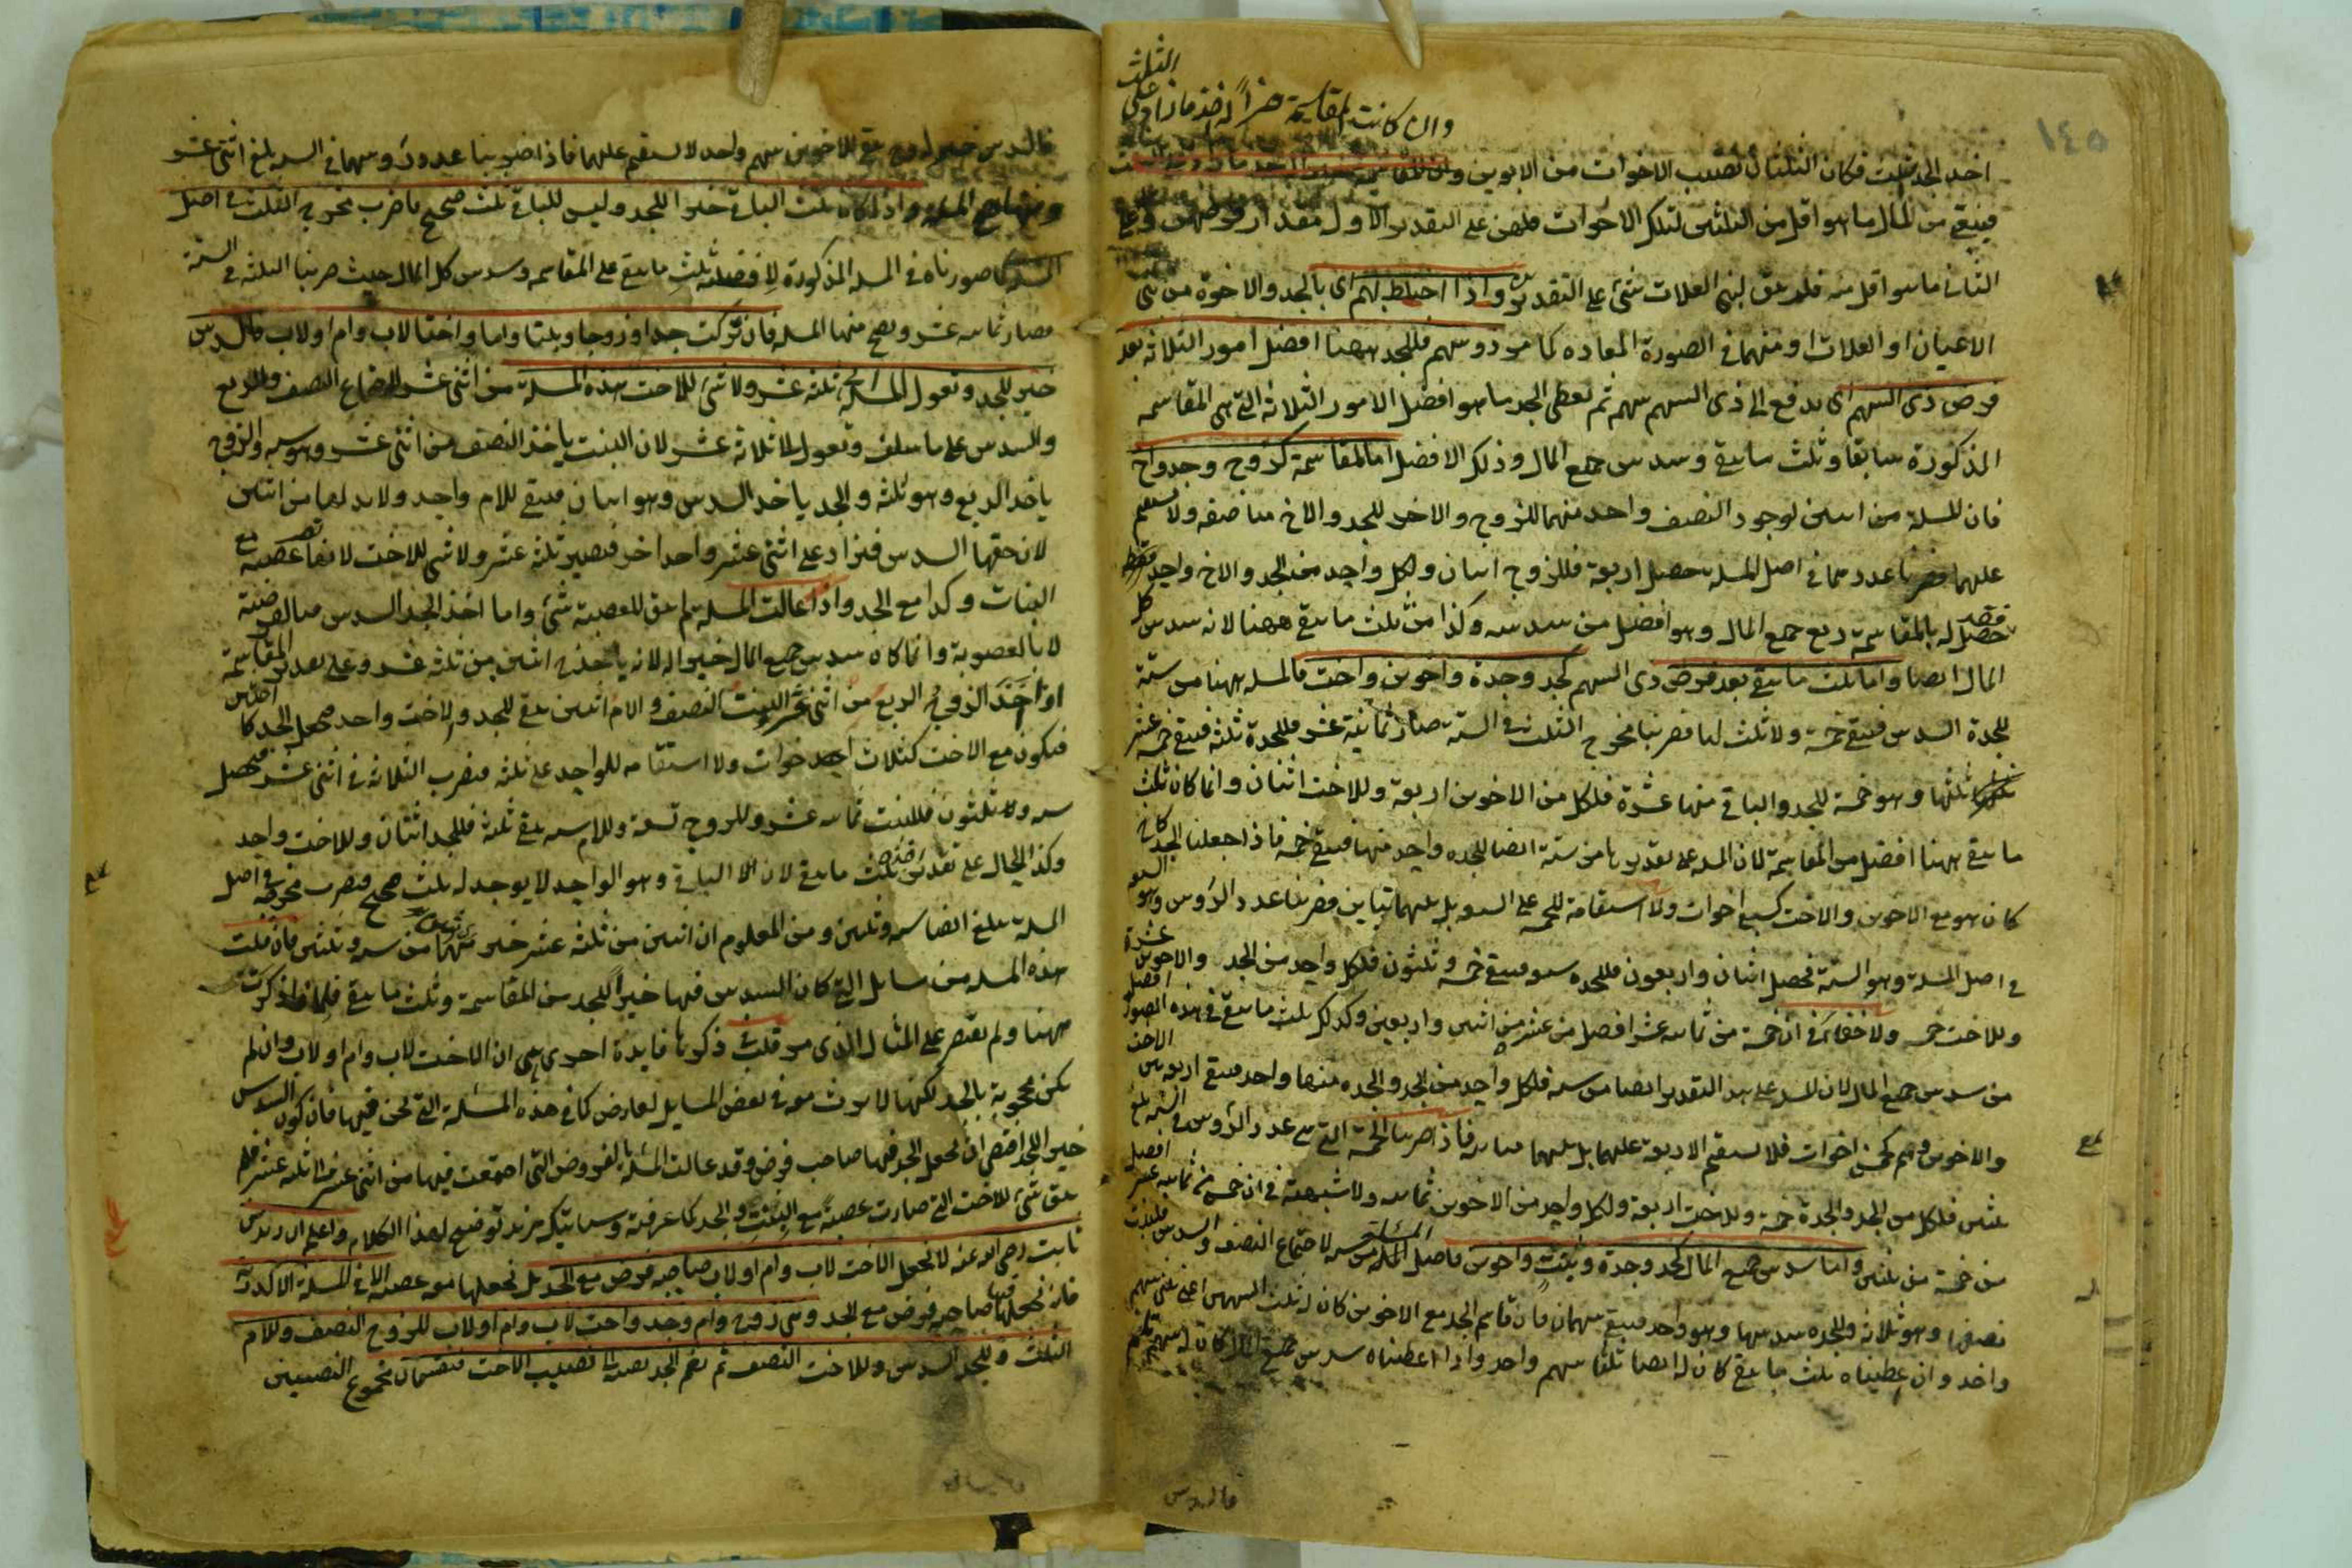 ١٤٥
وان كانت المقاسمة خيرا له اخذ ما زاد على
الثلث
اخذ الجد الثلث فكان الثلثان نصيب الاخوات من الابوين
فيبقى من المال ما هو اقل من الثلثين لتلك الاخوات فلهن على التقدير الاول مقدار فرضهن وعلى
الثانى ما هو اقل منه فلم يبق لبنى العلات شئ على التقديرين واذا اختلط بهم اى بالجد والاخوة من بنى
الاعيان او العلات او منهما فى الصورة المعادة كما مر ذو سهم فللجد ههنا افضل امور الثلاثة بعد
فرض ذى السهم اى يدفع الى ذى السهم سهمه ثم يعطى الجد ما هو افضل الامور الثلاثة التى هى المقاسمة
المذكورة سابقا وثلث ما يبقى وسدس جميع المال وذلك الافضل اما المقاسمة كزوج وجد واخ
فان المسئلة من اثنين لوجود النصف واحد منهما للزوج والاخر للجد والاخ مناصفة ولا يستقيم
عليهما فضربنا عددهما فى اصل المسئلة حصل اربعة فللزوج اثنان ولكل واحد من الجد والاخ واحد فقط
فقد حصل له بالمقاسمة ربع جميع المال وهو افضل من سدسه وكذا من ثلث ما يبقى ههنا لانه سدس كل
المال ايضا واما ثلث ما يبقى بعد فرض ذى السهم كجد وجدة واخوين واخت فالمسئلة ههنا من ستة
للجدة السدس فيبقى خمسة ولا ثلث لها فضربنا مخرج الثلث فى الستة صار ثمانية عشر فللجدة ثلثة فيبقى خمسة عشر
ثلثها وهو خمسة للجد والباقى منها عشرة فلكل من الاخوين اربعة وللاخت اثنان وانما كان ثلث
ما يبقى ههنا افضل من المقاسمة لان المسئلة على تقديرها من ستة ايضا للجدة واحد منها فيبقى خمسة فاذا جعلنا الجد كاخ
كان هو مع الاخوين والاخت كسبع اخوات ولا استقامة للخمسة على السبعة بل بينهما تباين فضربنا عدد الرؤس وهو السبعة
فى اصل المسئلة وهو الستة فحصل اثنان واربعون فللجدة سبعة فيبقى خمسة وثلثون فلكل واحد من الجد والاخوين عشرة
وللاخت خمسة ولا خفاء فى ان خمسة من ثمانية عشر افضل من عشرة من اثنين واربعين وكذلك ثلث ما يبقى فى هذه الصورة افضل
من سدس جميع المال لان المسئلة على هذا التقدير ايضا من ستة فلكل واحد من الجد والجدة منها واحد فيبقى اربعة بين الاخت
والاخوين وهم كخمس اخوات فلا يستقيم الاربعة عليهما بل بينهما مباينة فاذا ضربنا الخمسة التى هى عدد الرؤس فى الستة بلغ
ثلثين فلكل من الجد والجدة خمسة وللاخت اربعة ولكل واحد من الاخوين ثمانية ولا شبهة فى ان خمسة من ثمانية عشر افضل
من خمسة من ثلثين واما سدس جميع المال كجد وجدة وبنت واخوين فاصل المسئلة من ستة لاجتماع النصف والسدس فللبنت
نصفها وهو ثلاثة وللجدة سدسها وهو واحد فيبقى سهمان فان قاسم الجد مع الاخوين كان له ثلث السهمين اعنى ثلثى سهم
واحد وان اعطيناه ثلث ما يبقى كان له ايضا ثلثا سهم واحد واذا اعطيناه سدس جميع المال كان له سهم تام
فالسدس
فالسدس خير له وح يبقى للاخوين سهم واحد لا يستقيم عليهما فاذا ضربنا عدد رؤسهما فى الستة بلغ اثنى عشر
ومنها تصح المسئلة واذا كان ثلث الباقى خيرا للجد وليس للباقى ثلث صحيح فاضرب مخرج الثلث فى اصل
المسئلة كما صورناه فى المسئلة المذكورة لافضلية ثلث ما يبقى على المقاسمة وسدس كل المال حيث ضربنا الثلثة فى الستة
فصار ثمانية عشر ويصح منها المسئلة فان تركت جدا وزوجا وبنتا واما واختا لاب وام او لاب فالسدس
خير للجد وتعول المسئلة الى ثلثة عشر ولا شئ للاخت هذه المسئلة من اثنى عشر لاجتماع النصف والربع
والسدس على ما سلف وتعول الى ثلاثة عشر لان البنت ياخذ النصف من اثنى عشر وهو ستة والزوج
ياخذ الربع وهو ثلثة والجد ياخذ السدس وهو اثنان فيبقى للام واحد ولا بد لها من اثنين
لان حقها السدس فيزاد على اثنى عشر واحد اخر فيصير ثلثة عشر ولا شئ للاخت لانها تصير عصبة مع
البنات وكذا مع الجد واذا عالت المسئلة لم يبق للعصبة شئ واما اخذ الجد السدس فبالفرضية
لا بالعصوبة وانما كان سدس جميع المال خيرا له لانه ياخذ ح اثنين من ثلثة عشر وعلى تقدير المقاسمة
اذا اخذ الزوج الربع من اثنى عشر والبنت النصف والام اثنين يبقى للجد والاخت واحد فيجعل الجد كاختين
فيكون مع الاخت كثلاث اخوات ولا استقامة للواحد على ثلثة فيضرب الثلاثة فى اثنى عشر فيحصل
ستة وثلثون فللبنت ثمانية عشر وللزوج تسعة وللام ستة يبقى ثلثة فللجد اثنان وللاخت واحد
وكذا الحال على تقدير اخذه ثلث ما يبقى لان الباقى وهو الواحد لا يوجد له ثلث صحيح فيضرب مخرجه فى اصل
المسئلة يبلغ ايضا ستة وثلثين ومن المعلوم ان اثنين من ثلثة عشر خير منهما من ستة وثلثين فان قلت
هذه المسئلة من مسايل التى كان السدس فيها خيرا للجد من المقاسمة وثلث ما يبقى فلماذا ذكرت
ههنا ولم يقتصر على المثال الذى مر قلت ذكرها فايدة اخرى هى ان الاخت لاب وام او لاب وان لم
يكن محجوبة بالجد لكنها لا يرث معه فى بعض المسايل لعارض كما فى هذه المسئلة التى نحن فيها فان كون السدس
خيرا للجد اقتضى ان يجعل الجد فيها صاحب فرض وقد عالت المسئلة بالفروض التى اجتمعت فيها من اثنى عشر الى ثلثة عشر فلم
يبق شئ للاخت التى صارت عصبة مع البنت والجد كما عرفته وسياتيك مزيد توضيح لهذا الكلام واعلم ان زيد بن
ثابت رضى الله عنه لا يجعل الاخت لاب وام او لاب صاحبة فرض مع الجد بل يجعلها معه عصبة الا فى المسئلة الاكدرية
فانه يجعلها فيها صاحبة فرض مع الجد وهى زوج وام وجد واخت لاب وام او لاب للزوج النصف وللام
الثلث وللجد السدس وللاخت النصف ثم يضم الجد نصيبه الى نصيب الاخت فيقسمان مجموع النصيبين